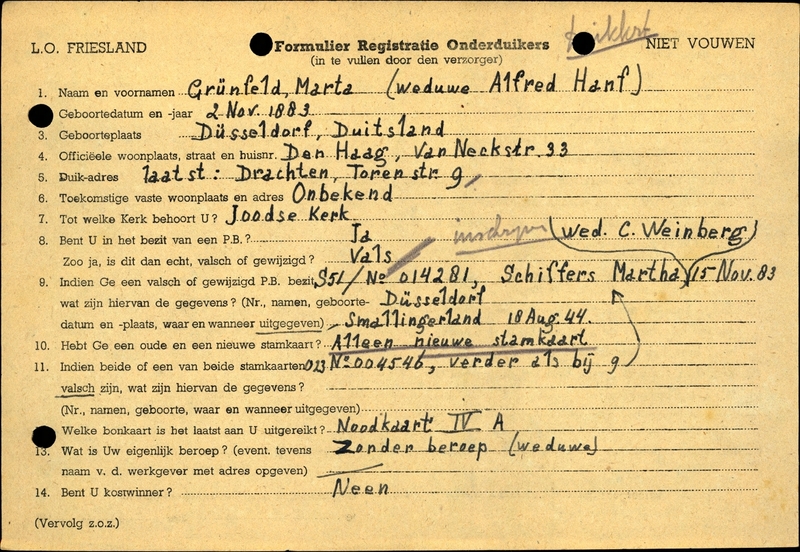 L.O. FRIESLAND
Formulier Registratie Onderduikers
NIET VOUWEN
(in te vullen door den verzorger)
1. Naam en voornamen Grünfeld, Marta (weduwe Alfred Hanf)
Geboortedatum en -jaar 2 Nov. 1883
3. Geboorteplaats Düsseldorf, Duitsland
4. Officiëele woonplaats, straat en huisnr. Den Haag, Van Neckstr. 33
5. Duik-adres laatst: Drachten, Torenstr 9
6. Toekomstige vaste woonplaats en adres Onbekend
7. Tot welke Kerk behoort U? Joodse Kerk
8. Bent U in het bezit van een P.B.? Ja (wed. C. Weinberg)
Zoo ja, is dit dan echt, valsch of gewijzigd? Vals
9. Indien Ge een valsch of gewijzigd P.B. bezit, S51/No 014281, Schiffers Martha 15 Nov. 83
wat zijn hiervan de gegevens? (Nr., namen, geboorte- Düsseldorf
datum en -plaats, waar en wanneer uitgegeven) Smallingerland 18 Aug. 44.
10. Hebt Ge een oude en een nieuwe stamkaart? Alleen nieuwe stamkaart
11. Indien beide of een van beide stamkaarten 023 No 004546, verder als bij 9
valsch zijn, wat zijn hiervan de gegevens?
(Nr., namen, geboorte, waar en wanneer uitgegeven)
Welke bonkaart is het laatst aan U uitgereikt? Noodkaart IV A
13. Wat is Uw eigenlijk beroep? (event. tevens Zonder beroep (weduwe)
naam v. d. werkgever met adres opgeven)
14. Bent U kostwinner? Neen
(Vervolg z.o.z.)